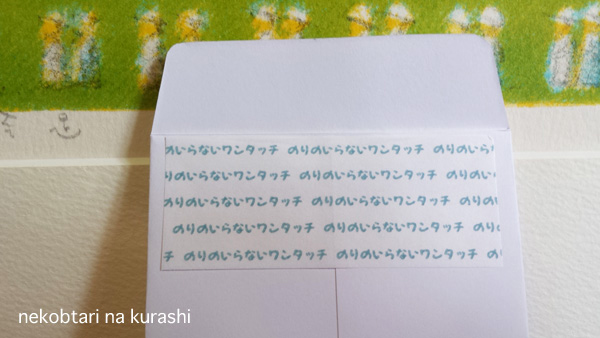 のいらないワンタッチ のりのいらないワンタッチ のりのいら
りのいらないワンタッチ のりのいらないワンタッチ のりのい
のりのいらないワンタッチ のりのいらないワンタッチ のりのい
のりのいらないワンタッチ のりのいらないワンタッチ のりの
チ のりのいらないワンタッチ のりのいらないワンタッチ のり
nekobtari na kurashi